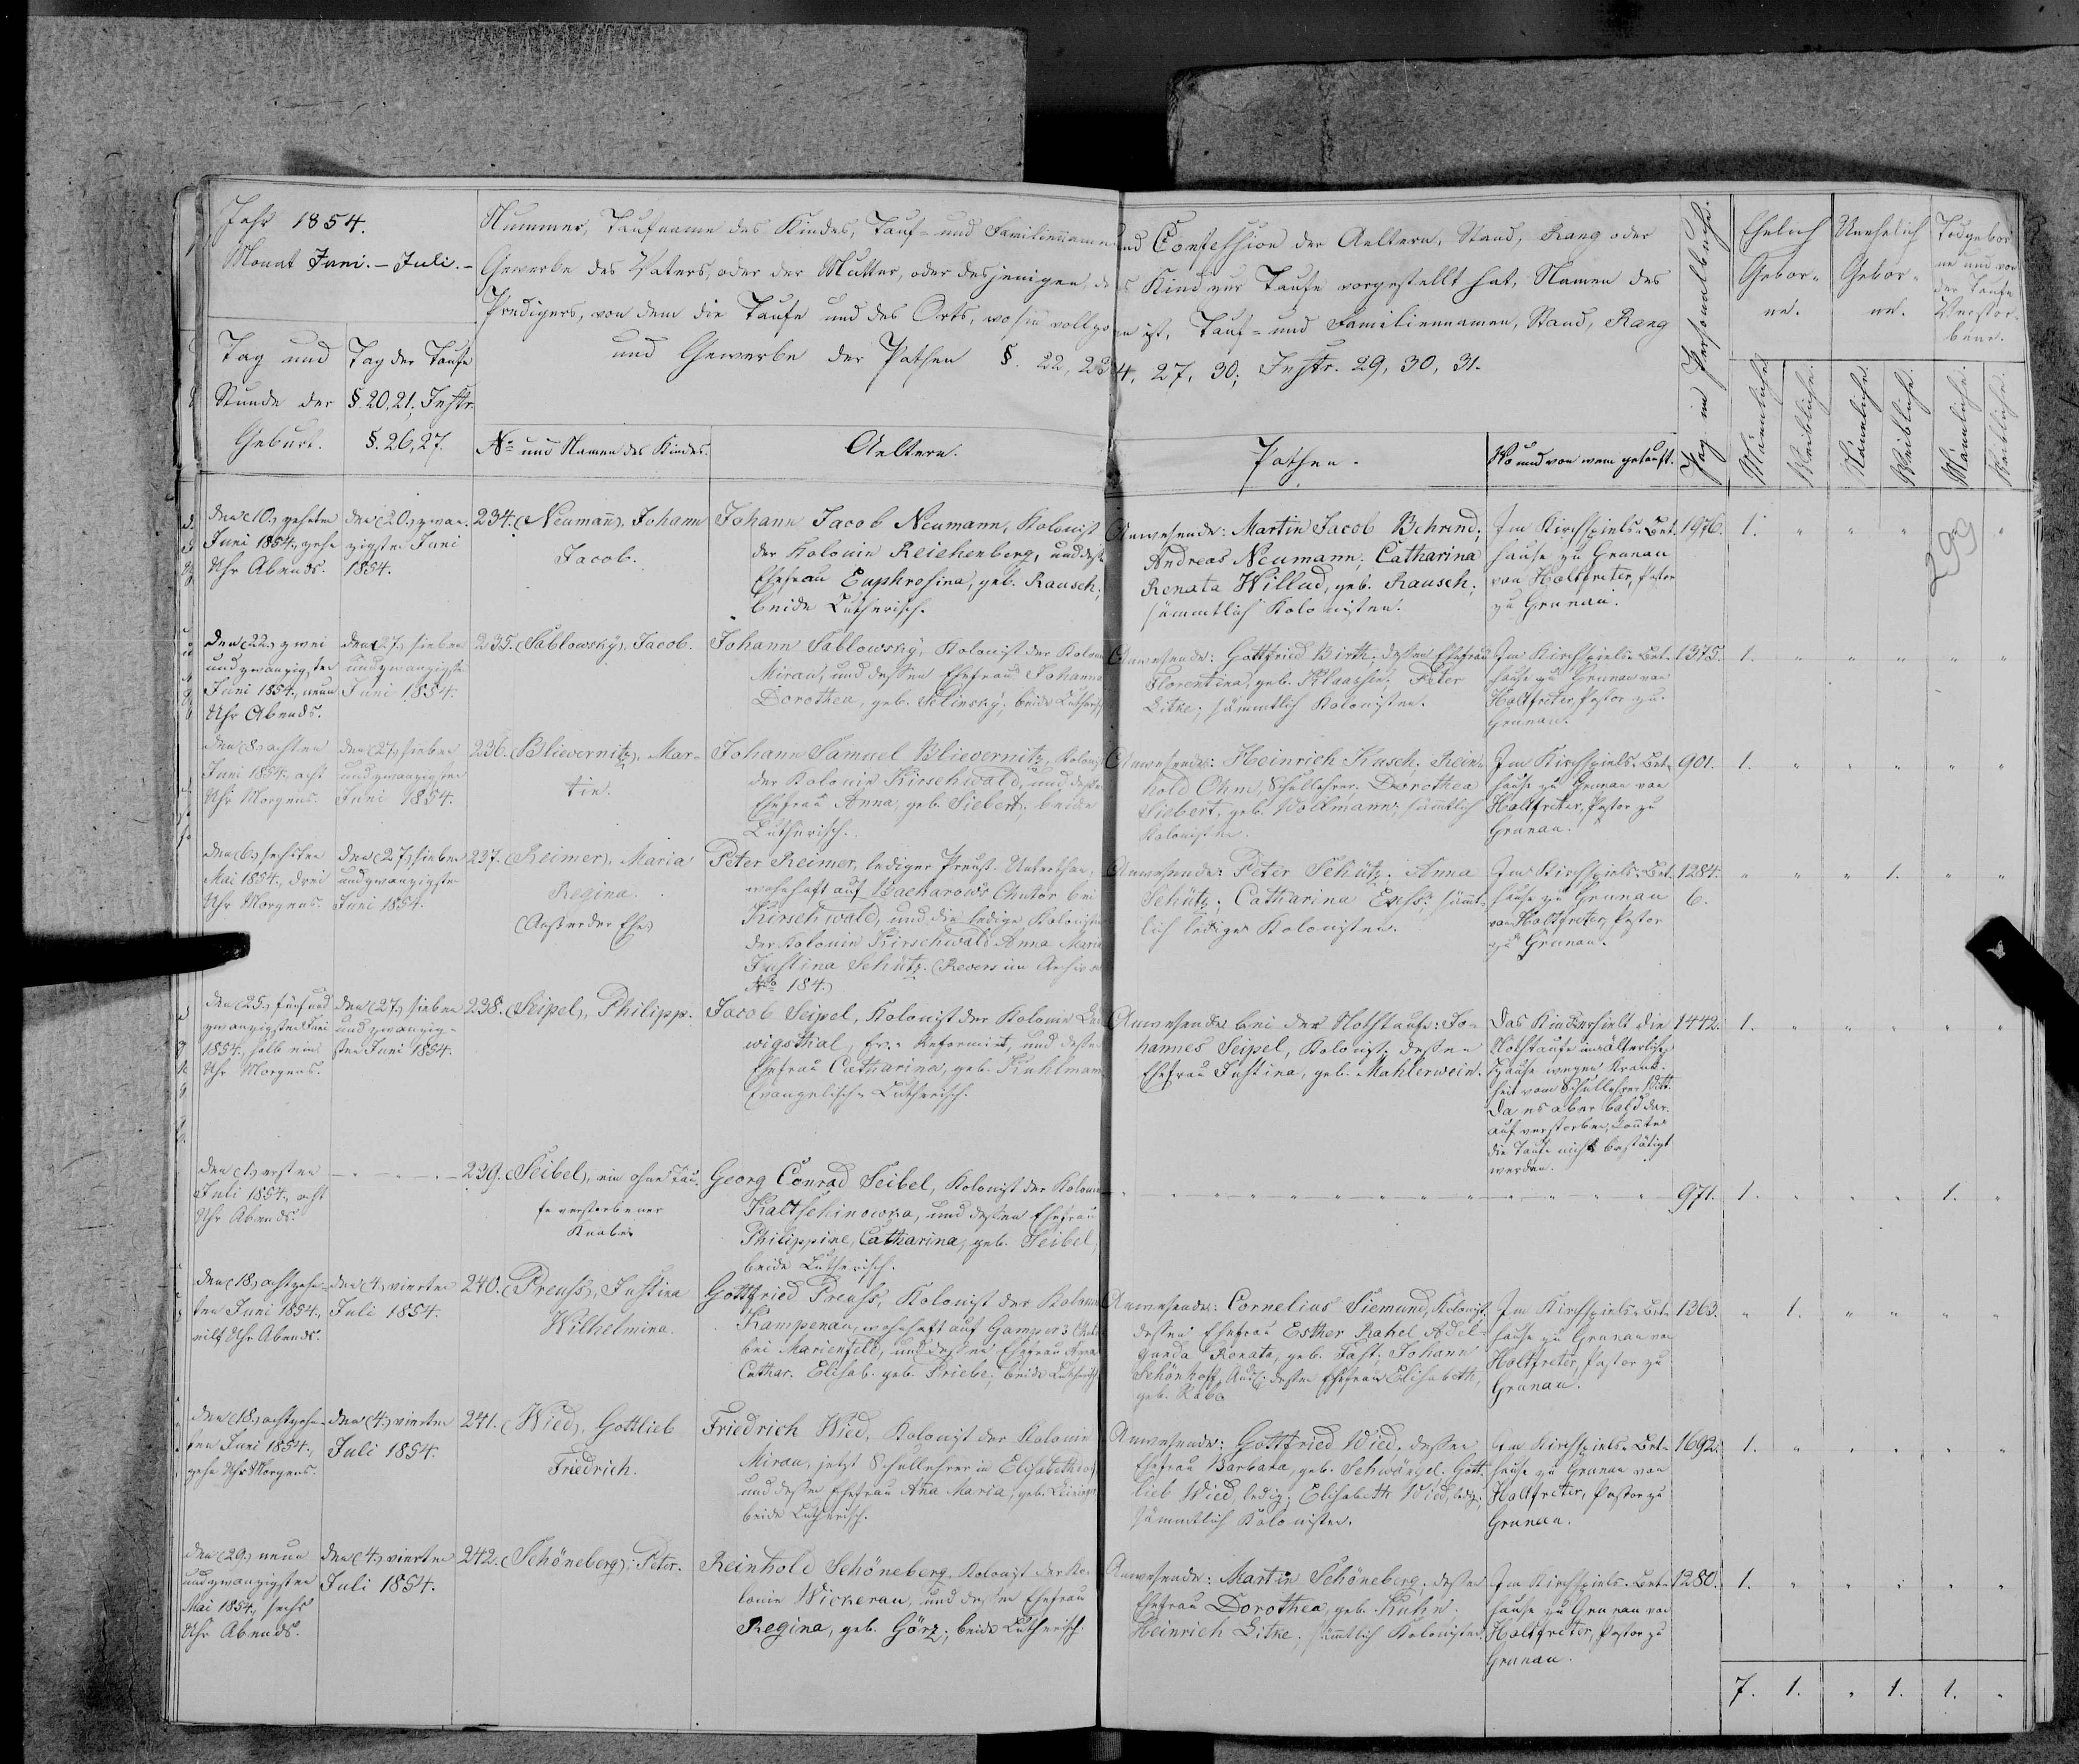 Jahr 1854.
Monat Juni. – Juli. –
Nummer, Taufname des Kindes, Tauf- und Familiennamen und Confession der Aeltern, Stand, Rang oder
Gewerbe des Vaters, oder der Mutter, oder desjenigen, der das Kind zur Taufe vorgestellt hat, Namen des
Predigers, von dem die Taufe und des Orts, wo sie vollzogen ist, Tauf- und Familiennamen, Stand, Rang
und Gewerbe der Pathen §. 22, 23 4, 27, 30; Instr. 29, 30, 31.
Tag und
Stunde der
Geburt.
Tag der Taufe
§. 20, 21; Instr.
§. 26, 27.
No und Namen des Kindes.
Aeltern.
Pathen.
Wo und von wem getauft.
Pag. im Personalbuche.
Ehelich
Gebor-
ne.
Unehelich
Gebor-
ne.
Todgebor
ne und vor
der Taufe
Verstor-
bene.
Männliche.
Weibliche.
Männliche.
Weibliche.
Männliche.
Weibliche.
299
den (10.) zehnten
Juni 1854., zehn
Uhr Abends.
den (20.) zwan-
zigsten Juni
1854.
234. (Neumann), Johann
Jacob.
Johann Jacob Neumann, Kolonist
der Kolonie Reichenberg, und dess.
Ehefrau Euphrosina, geb. Rausch;
beide Lutherisch.
Anwesende: Martin Jacob Behrend;
Andreas Neumann; Catharina
Renata Willud, geb. Rausch;
sämmtlich Kolonisten.
Im Kirchspiels-Bet-
hause zu Grunau
von Holtfreter, Pastor
zu Grunau.
1976. 1. " " " "
den (22.) zwei
und zwanzigsten
Juni 1854., neun
Uhr Abends.
den (27.) sieben
und zwanzigsten
Juni 1854.
235. (Sablowsky), Jacob.
Johann Sablowsky, Kolonist der Kolonie
Mirau, und dessen Ehefrau Johanna
Dorothea, geb. Selinsky; beide Lutherisch
Anwesende: Gottfried Birth; dessen Ehefrau
Florentina, geb. Klaassen; Peter
Litke; sämmtlich Kolonisten.
Im Kirchspiels-Bet-
hause zu Grunau von
Holtfreter, Pastor zu
Grunau.
1375. 1. " " " " "
den (8.) achten
Juni 1854., acht
Uhr Morgens.
den (27.) sieben
und zwanzigsten
Juni 1854.
236. (Blievernitz), Mar-
tin.
Johann Samuel Blievernitz, Kolonist
der Kolonie Kirschwald, und dessen
Ehefrau Anna, geb. Siebert; beide
Lutherisch.
Anwesende: Heinrich Kusch; Rein-
hold Ohm, Schullehrer; Dorothea
Siebert, geb. Wollmann; sämmtlich
Kolonisten.
Im Kirchspiels-Bet-
hause zu Grunau von
Holtfreter, Pastor zu
Grunau.
901. 1. " " " " "
den (6.) sechsten
Mai 1854., drei
Uhr Morgens.
den (27.) sieben
und zwanzigsten
Juni 1854.
237. (Reimer), Maria
Regina.
(Außer der Ehe)
Peter Reimer, lediger Preuß. Unterthan,
wohnhaft auf Bacharows Chutor bei
Kirschwald, und die ledige Kolonistin
der Kolonie Kirschwald Anna Maria
Justina Schütz. (Revers im Archiv
No 184.)
Anwesende: Peter Schütz; Anna
Schütz; Catharina Enss; sämmt-
lich ledige Kolonisten.
Im Kirchspiels-Bet-
hause zu Grunau
von Holtfreter, Pastor
zu Grunau.
1284.
6.
" " " 1. " "
den (25.) fünf und
zwanzigsten Juni
1854., halb ein
Uhr Morgens.
den (27.) sieben
und zwanzig-
sten Juni 1854.
238. (Seipel), Philipp.
Jacob Seipel, Kolonist der Kolonie Lud
wigsthal, Ev.-Reformirt, und dessen
Ehefrau Catharina, geb. Kuhlmann
Evangelisch-Lutherisch.
Anwesende bei der Nothtaufe: Jo-
hannes Seipel, Kolonist; dessen
Ehefrau Justina, geb. Mahlerwein.
Das Kind erhielt die
Nothtaufe im älterlichen
Hause wegen Krank-
heit vom Schullehrer Witt.
Da es aber bald dar-
auf verstorben, konnte
die Taufe nicht bestätigt
werden.
1442. 1. " " " " "
den (1.) ersten
Juli 1854., acht
Uhr Abends.
239. (Seibel), ein ohne Tau-
fe verstorbener
Knabe.
Georg Conrad Seibel, Kolonist der Kolonie
Kaltschinowka, und dessen Ehefrau
Philippine Catharina, geb. Seibel,
beide Lutherisch.
971. 1. " " " 1. "
den (18.) achtzehn-
ten Juni 1854.,
eilf Uhr Abends.
den (4.) vierten
Juli 1854.
240. (Preuss), Justina
Wilhelmina.
Gottfried Preuss, Kolonist der Kolonie
Kampenau, wohnhaft auf Gampers Chutor
bei Marienfeld, und dessen Ehefrau Anna
Cathar. Elisab. geb. Priebe; beide Lutherisch
Anwesende: Cornelius Siemund, Kolonist;
dessen Ehefrau Esther Rahel Adel-
gunda Renata, geb. Fast; Johann
Schönhoff, dessen Ehefrau Elisabeth,
geb. Rabe
Im Kirchspiels-Bet-
hause zu Grunau von
Holtfreter, Pastor zu
Grunau.
1363. " 1. " " " "
den (18.) achtzehn-
ten Juni 1854.,
zehn Uhr Morgens.
den (4.) vierten
Juli 1854.
241. (Wied), Gottlieb
Friedrich.
Friedrich Wied, Kolonist der Kolonie
Mirau, jetzt Schullehrer in Elisabethdorf
und dessen Ehefrau Anna Maria, geb.
beide Lutherisch.
Anwesende: Gottfried Wied; dessen
Ehefrau Barbara, geb. Schwängel; Gott-
lieb Wied, ledig; Elisabeth Wied, ledig;
sämmtlich Kolonisten.
Im Kirchspiels-Bet-
hause zu Grunau von
Holtfreter, Pastor zu
Grunau.
1692. 1. " " " " "
den (29.) neun
und zwanzigsten
Mai 1854., sechs
Uhr Abends.
den (4.) vierten
Juli 1854.
242. (Schöneberg), Peter.
Reinhold Schöneberg, Kolonist der Ko-
lonie Wickerau, und dessen Ehefrau
Regina, geb. Görz; beide Lutherisch.
Anwesende: Martin Schöneberg; dessen
Ehefrau Dorothea, geb. Kuhn;
Heinrich Litke; sämmtlich Kolonisten.
Im Kirchspiels-Bet-
hause zu Grunau von
Holtfreter, Pastor zu
Grunau.
1280. 1. " " " " "
7. 1. " 1. 1. "